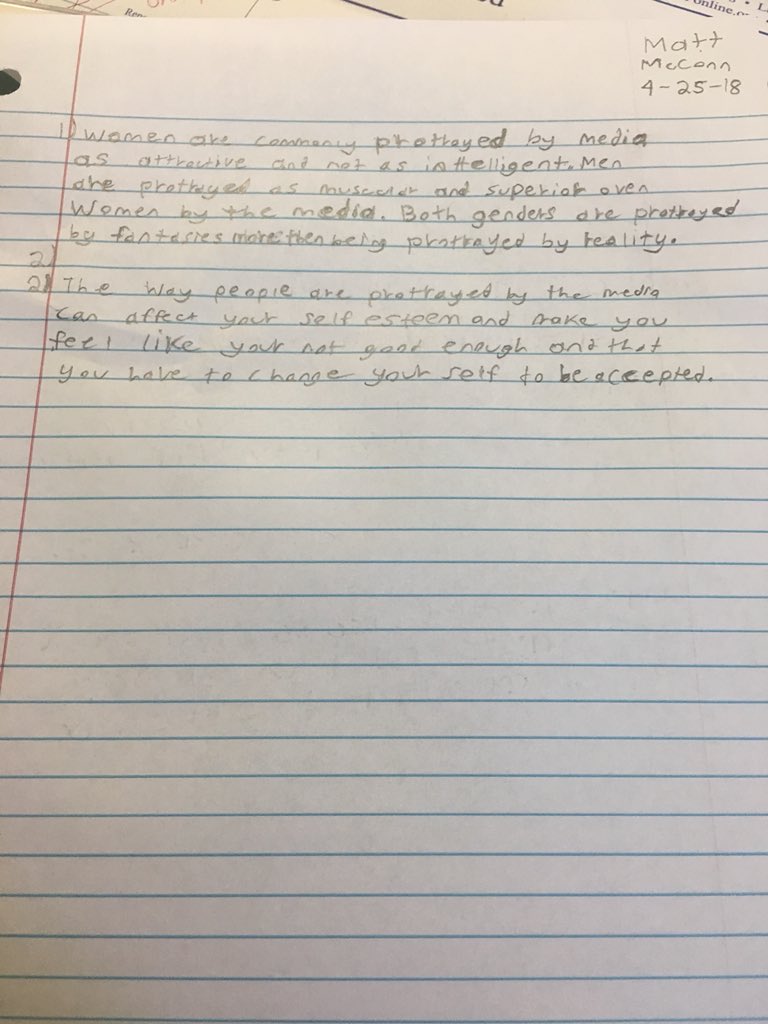 online.o
Matt
McConn
4-25-18
1) Women are commonly protrayed by media
as attractive and not as inttelligent. Men
are protrayed as muscular and superior over
Women by the media. Both genders are protrayed
by fantasies more then being protrayed by reality.
2)
2) The way people are protrayed by the media
can affect your self esteem and make you
feel like your not good enough and that
you have to change your self to be accepted.